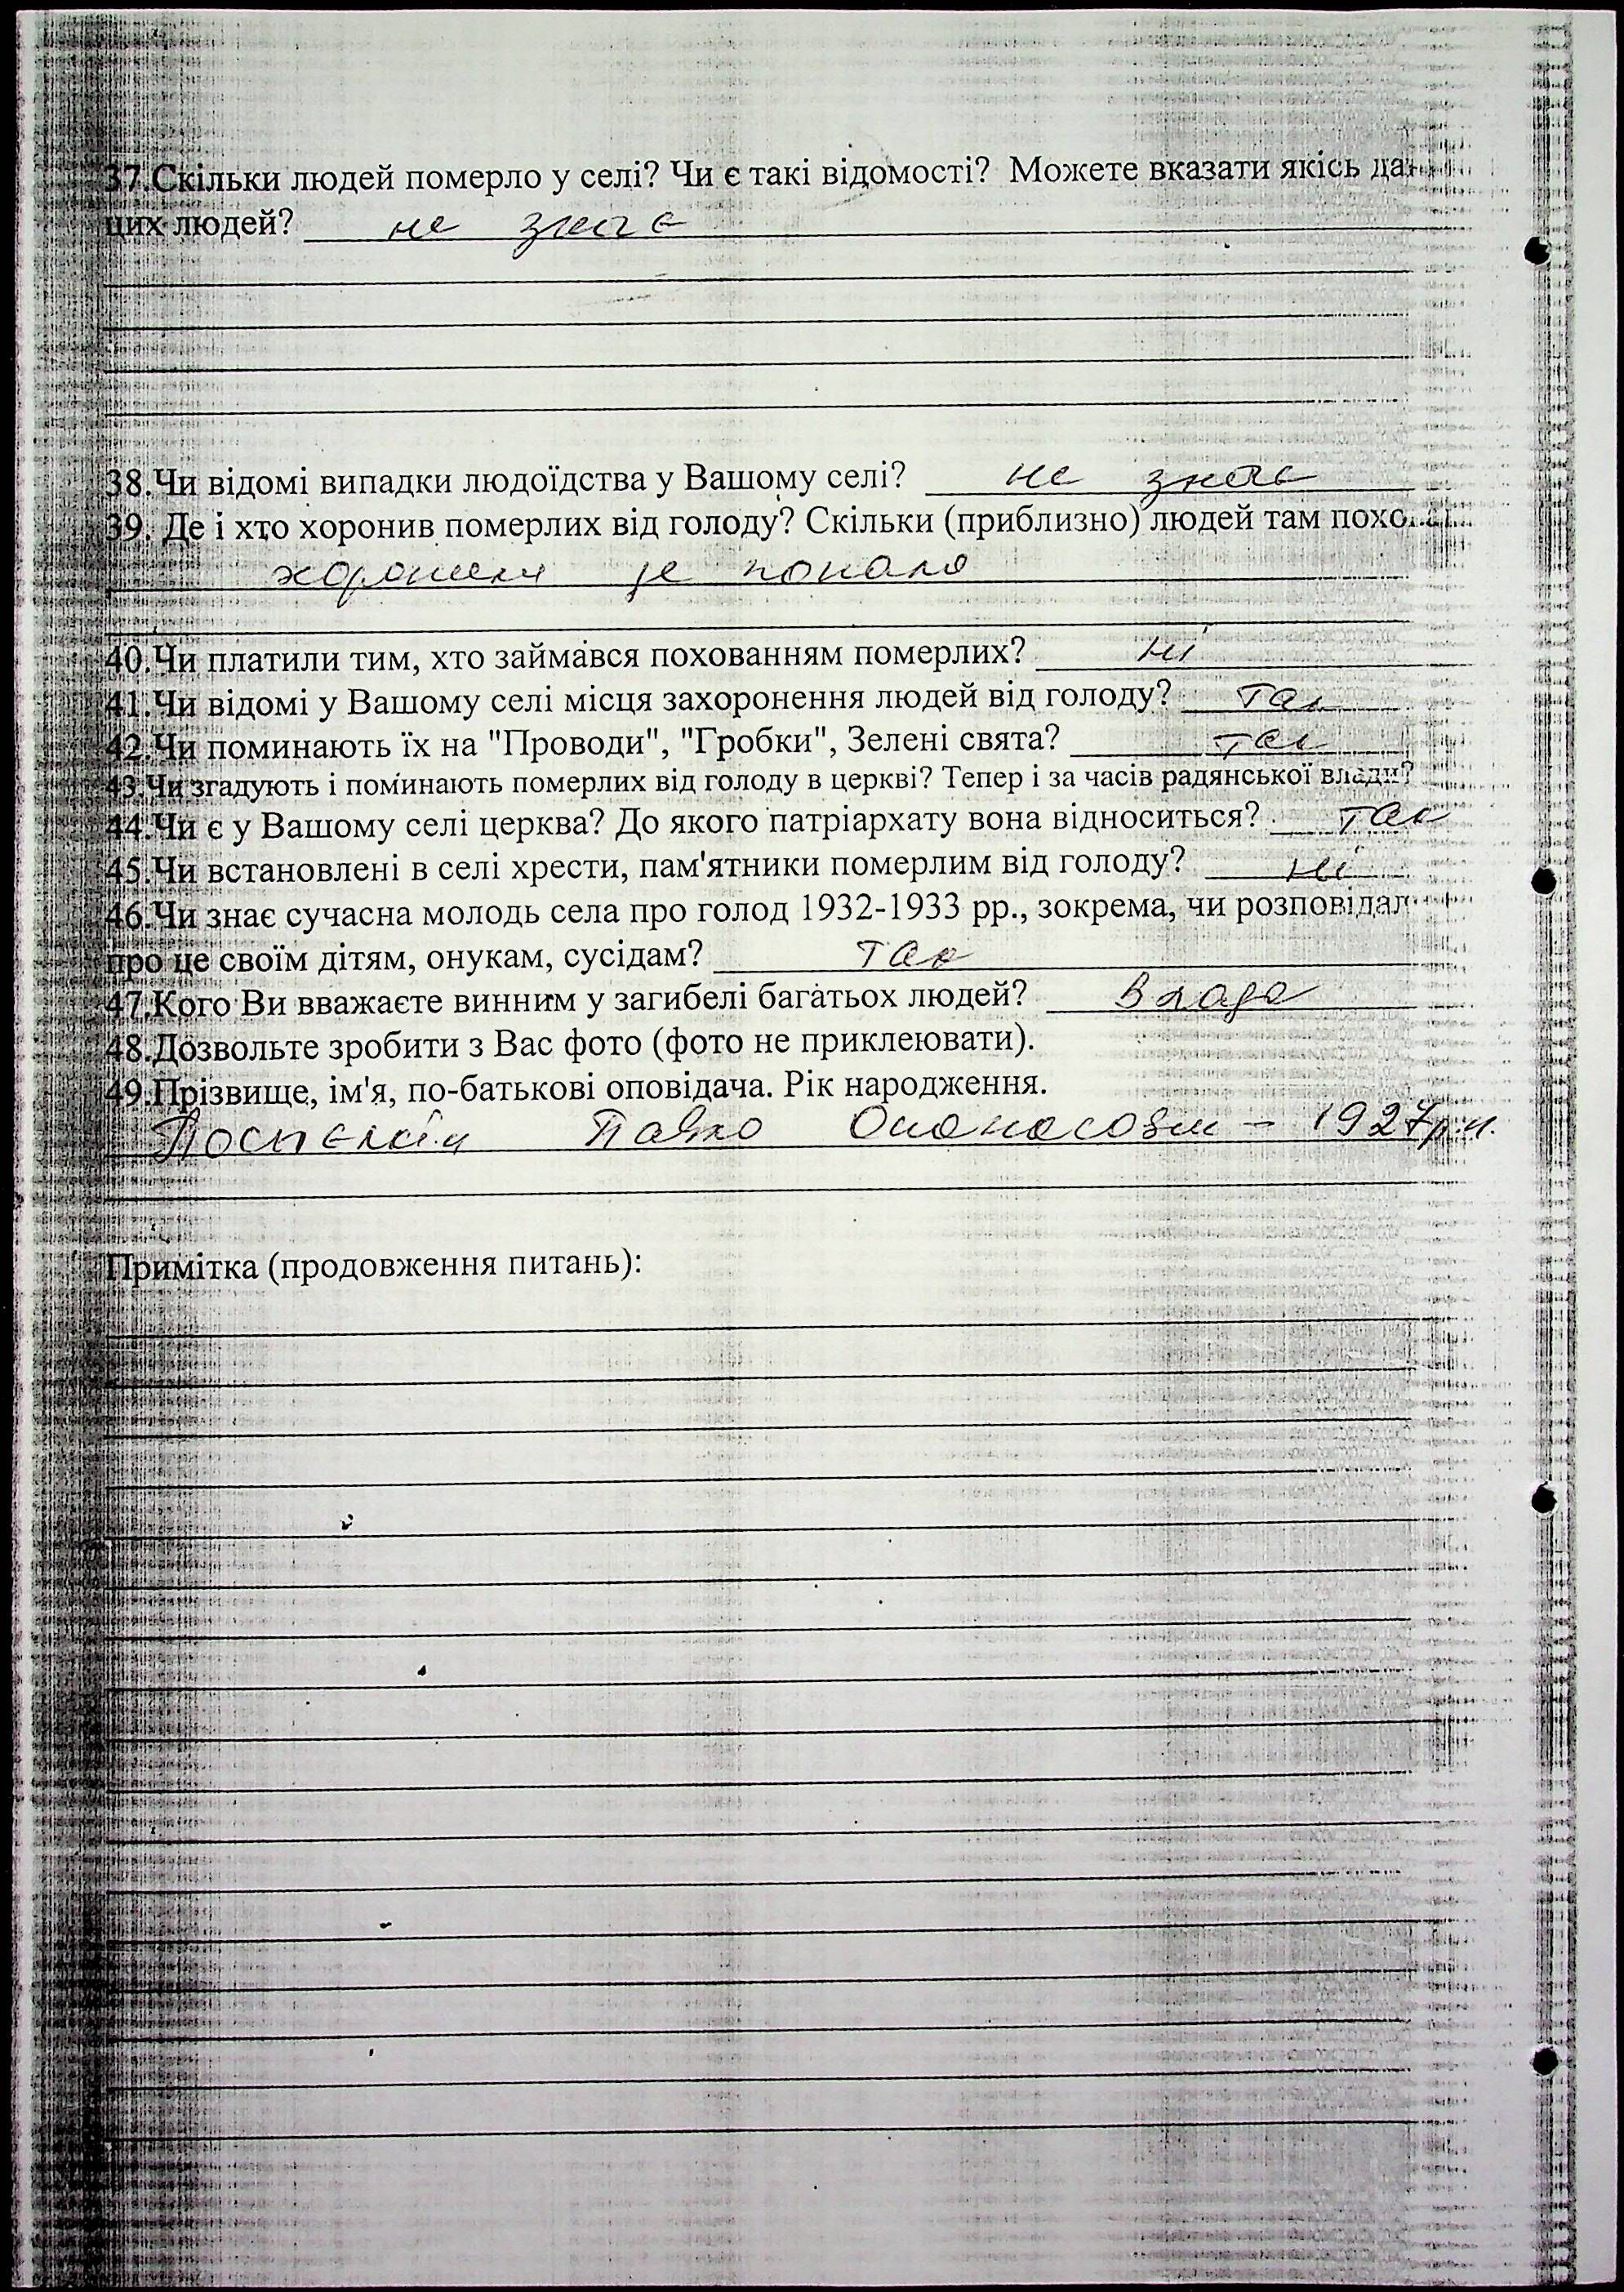 37.Скільки людей померло у селі? Чи є такі відомості? Можете вказати якісь
цих людей? не знає
38.Чи відомі випадки людоїдства у Вашому селі? не знає
39. Де і хто хоронив померлих від голоду? Скільки (приблизно) людей там
хоронили де попало
40.Чи платили тим, хто займався похованням померлих? ні
41.Чи відомі у Вашому селі місця захоронення людей від голоду? Так
42.Чи поминають їх на "Проводи", "Гробки", Зелені свята? так
43.Чи згадують і поминають померлих від голоду в церкві? Тепер і за часів радянської влади?
44.Чи є у Вашому селі церква? До якого патріархату вона відноситься? так
45.Чи встановлені в селі хрести, пам'ятники померлим від голоду? ні
46.Чи знає сучасна молодь села про голод 1932-1933 рр., зокрема, чи
про це своїм дітям, онукам, сусідам? Так
47.Кого Ви вважаєте винним у загибелі багатьох людей? Влада
48.Дозвольте зробити з Вас фото (фото не приклеювати).
49.Прізвище, ім'я, по-батькові оповідача. Рік народження.
Павло - 1927р.н.
Примітка (продовження питань):